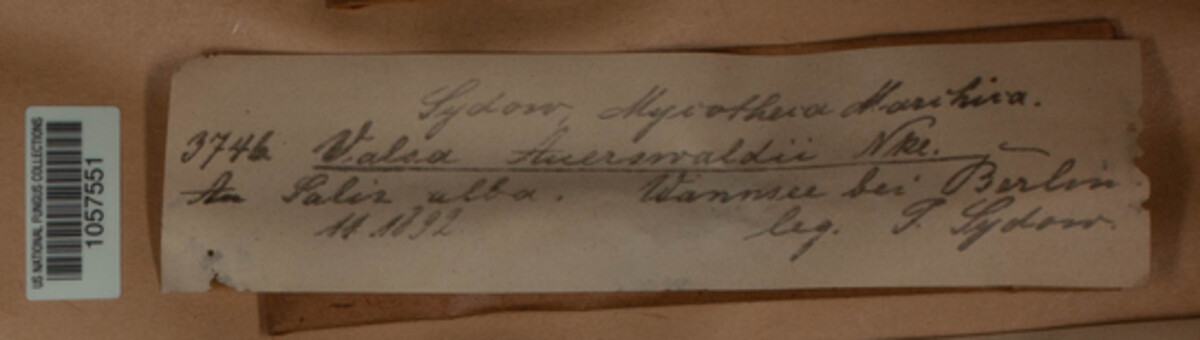 US NATIONAL FUNGUS COLLECTIONS
10575551
Sydow, Mycotheca Marchica.
3746. Valsa Auerswaldii Nke.
An Salix alba. Wannsee bei Berlin
11.1892 leg. P. Sydow.